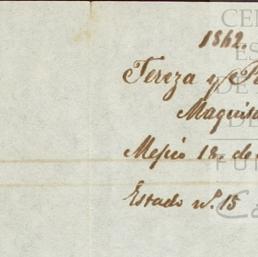 1862.
Tereza y
Maquis
Mejico 18. de
Estado nº. 15
CE
ES
DE
DE
FUN
Ca